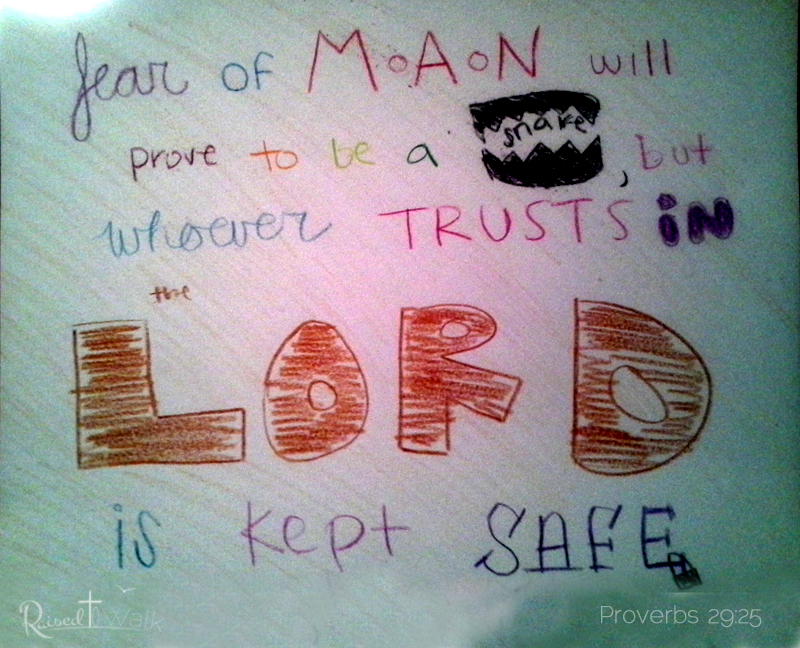 fear of M•A•N will
prove to be a snare, but
whoever TRUSTS iN
the
LORD
is kept SAFE
Raised† Walk
Proverbs 29:25